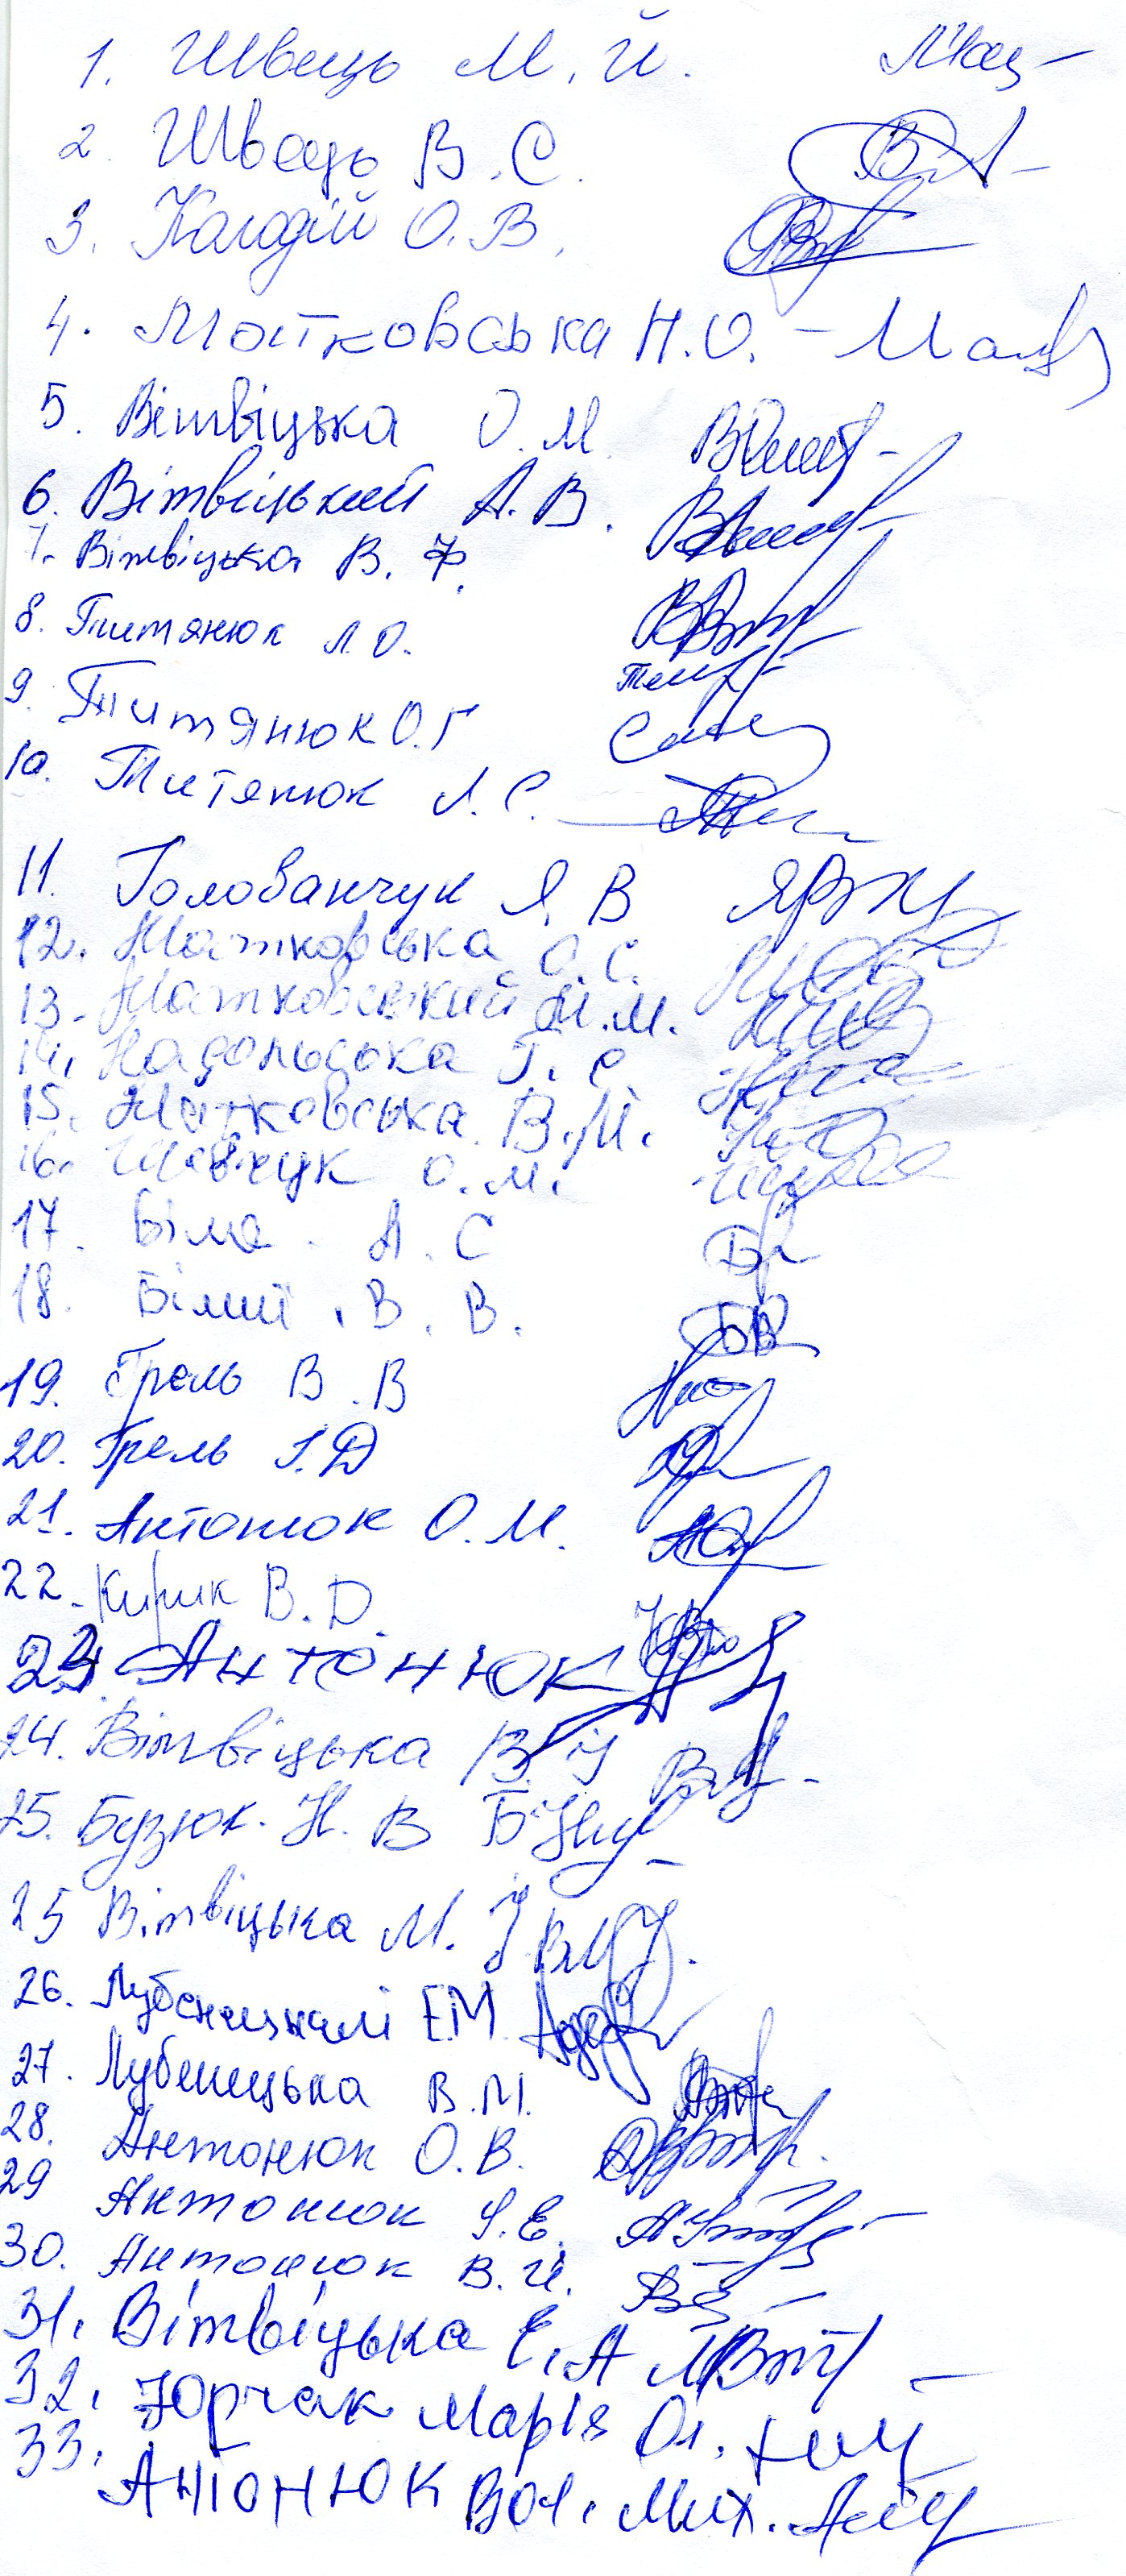 1. Швець М. Й.
2. Швець В. С.
3. О. В.
4. Матковська Н. О. -
5. Вітвіцька О. М.
6. Вітвіцький А. В.
7. Вітвіцька В. Ф.
8. Титянюк Л. О.
9. Титянюк О. Г
10. Титянюк Л. С.
11. Голованчук Я. В
12. Матковська О. С.
13. Матковський М. М.
14. Надольська Г. С
15. Матковська В. М.
16. Шевчук О. М.
17. Біла А. С
18. Білий В. В.
19. Грель В. В
20. Грель І. Д
21. Антонюк О. М.
22. Кирик В. D.
23 Антонюк
24. Вітвіцька В. У
25. Бузюк Н. В
25 Вітвіцька М. І
26. Е М
27. Лубенецька В. М.
28. Антонюк О. В.
29 Антонюк Я. Е.
30. Антонюк В. Й.
31. Вітвіцька Є. А
32. Юрчак Марія Ол.
33. Антонюк Вол. Мих.